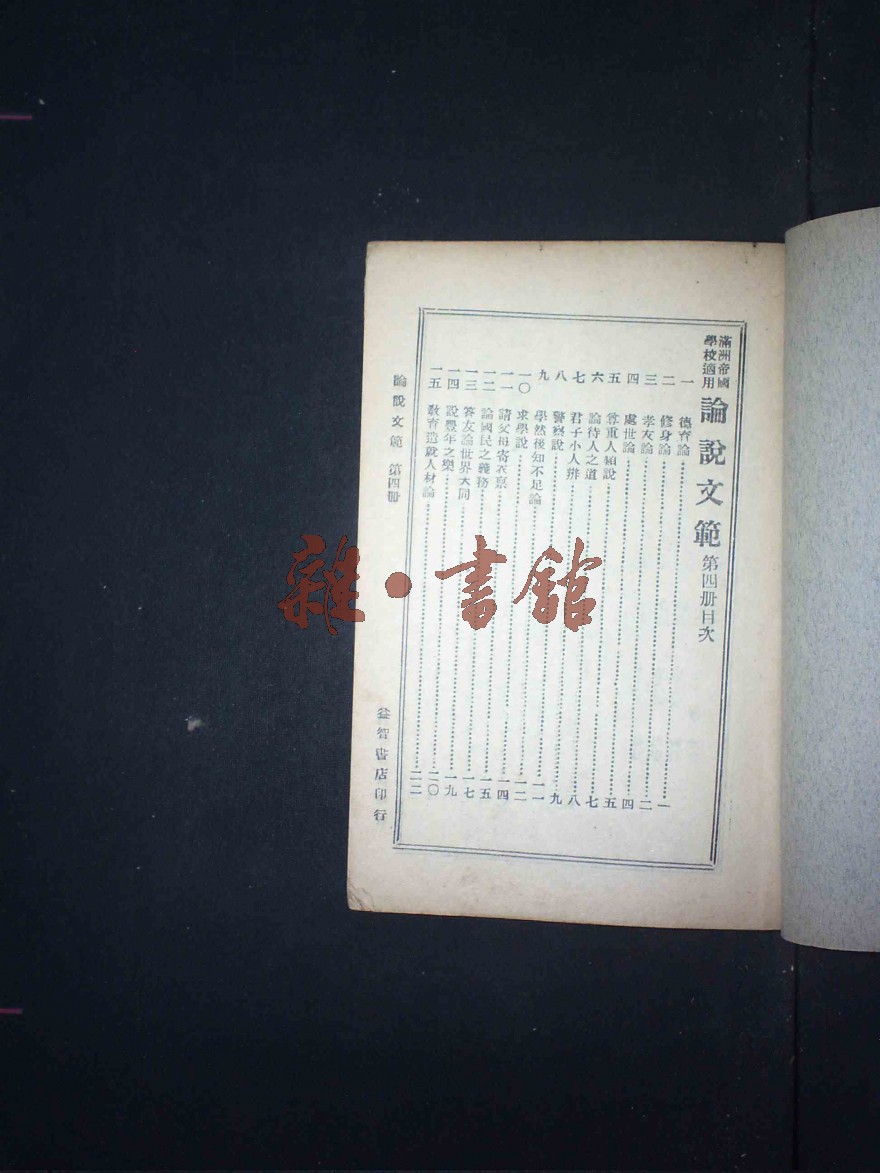 滿洲帝國
學校適用
論說文範 第四册目次
一 德育論 一
二 修身論 二
三 孝友論 四
四 處世論 五
五 尊重人類說 七
六 論待人之道 八
七 君子小人辨 九
八 警察說
九 學然後知不足論 一一
一〇 求學說 一二
一一 請父母寄衣禀 一四
一二 論國民之義務 一五
一三 答友論世界大同 一七
一四 說豐年之樂 一九
一五 教育造就人材論 二〇
二二
論說文範 第四册
益智書店印行
雜·書館